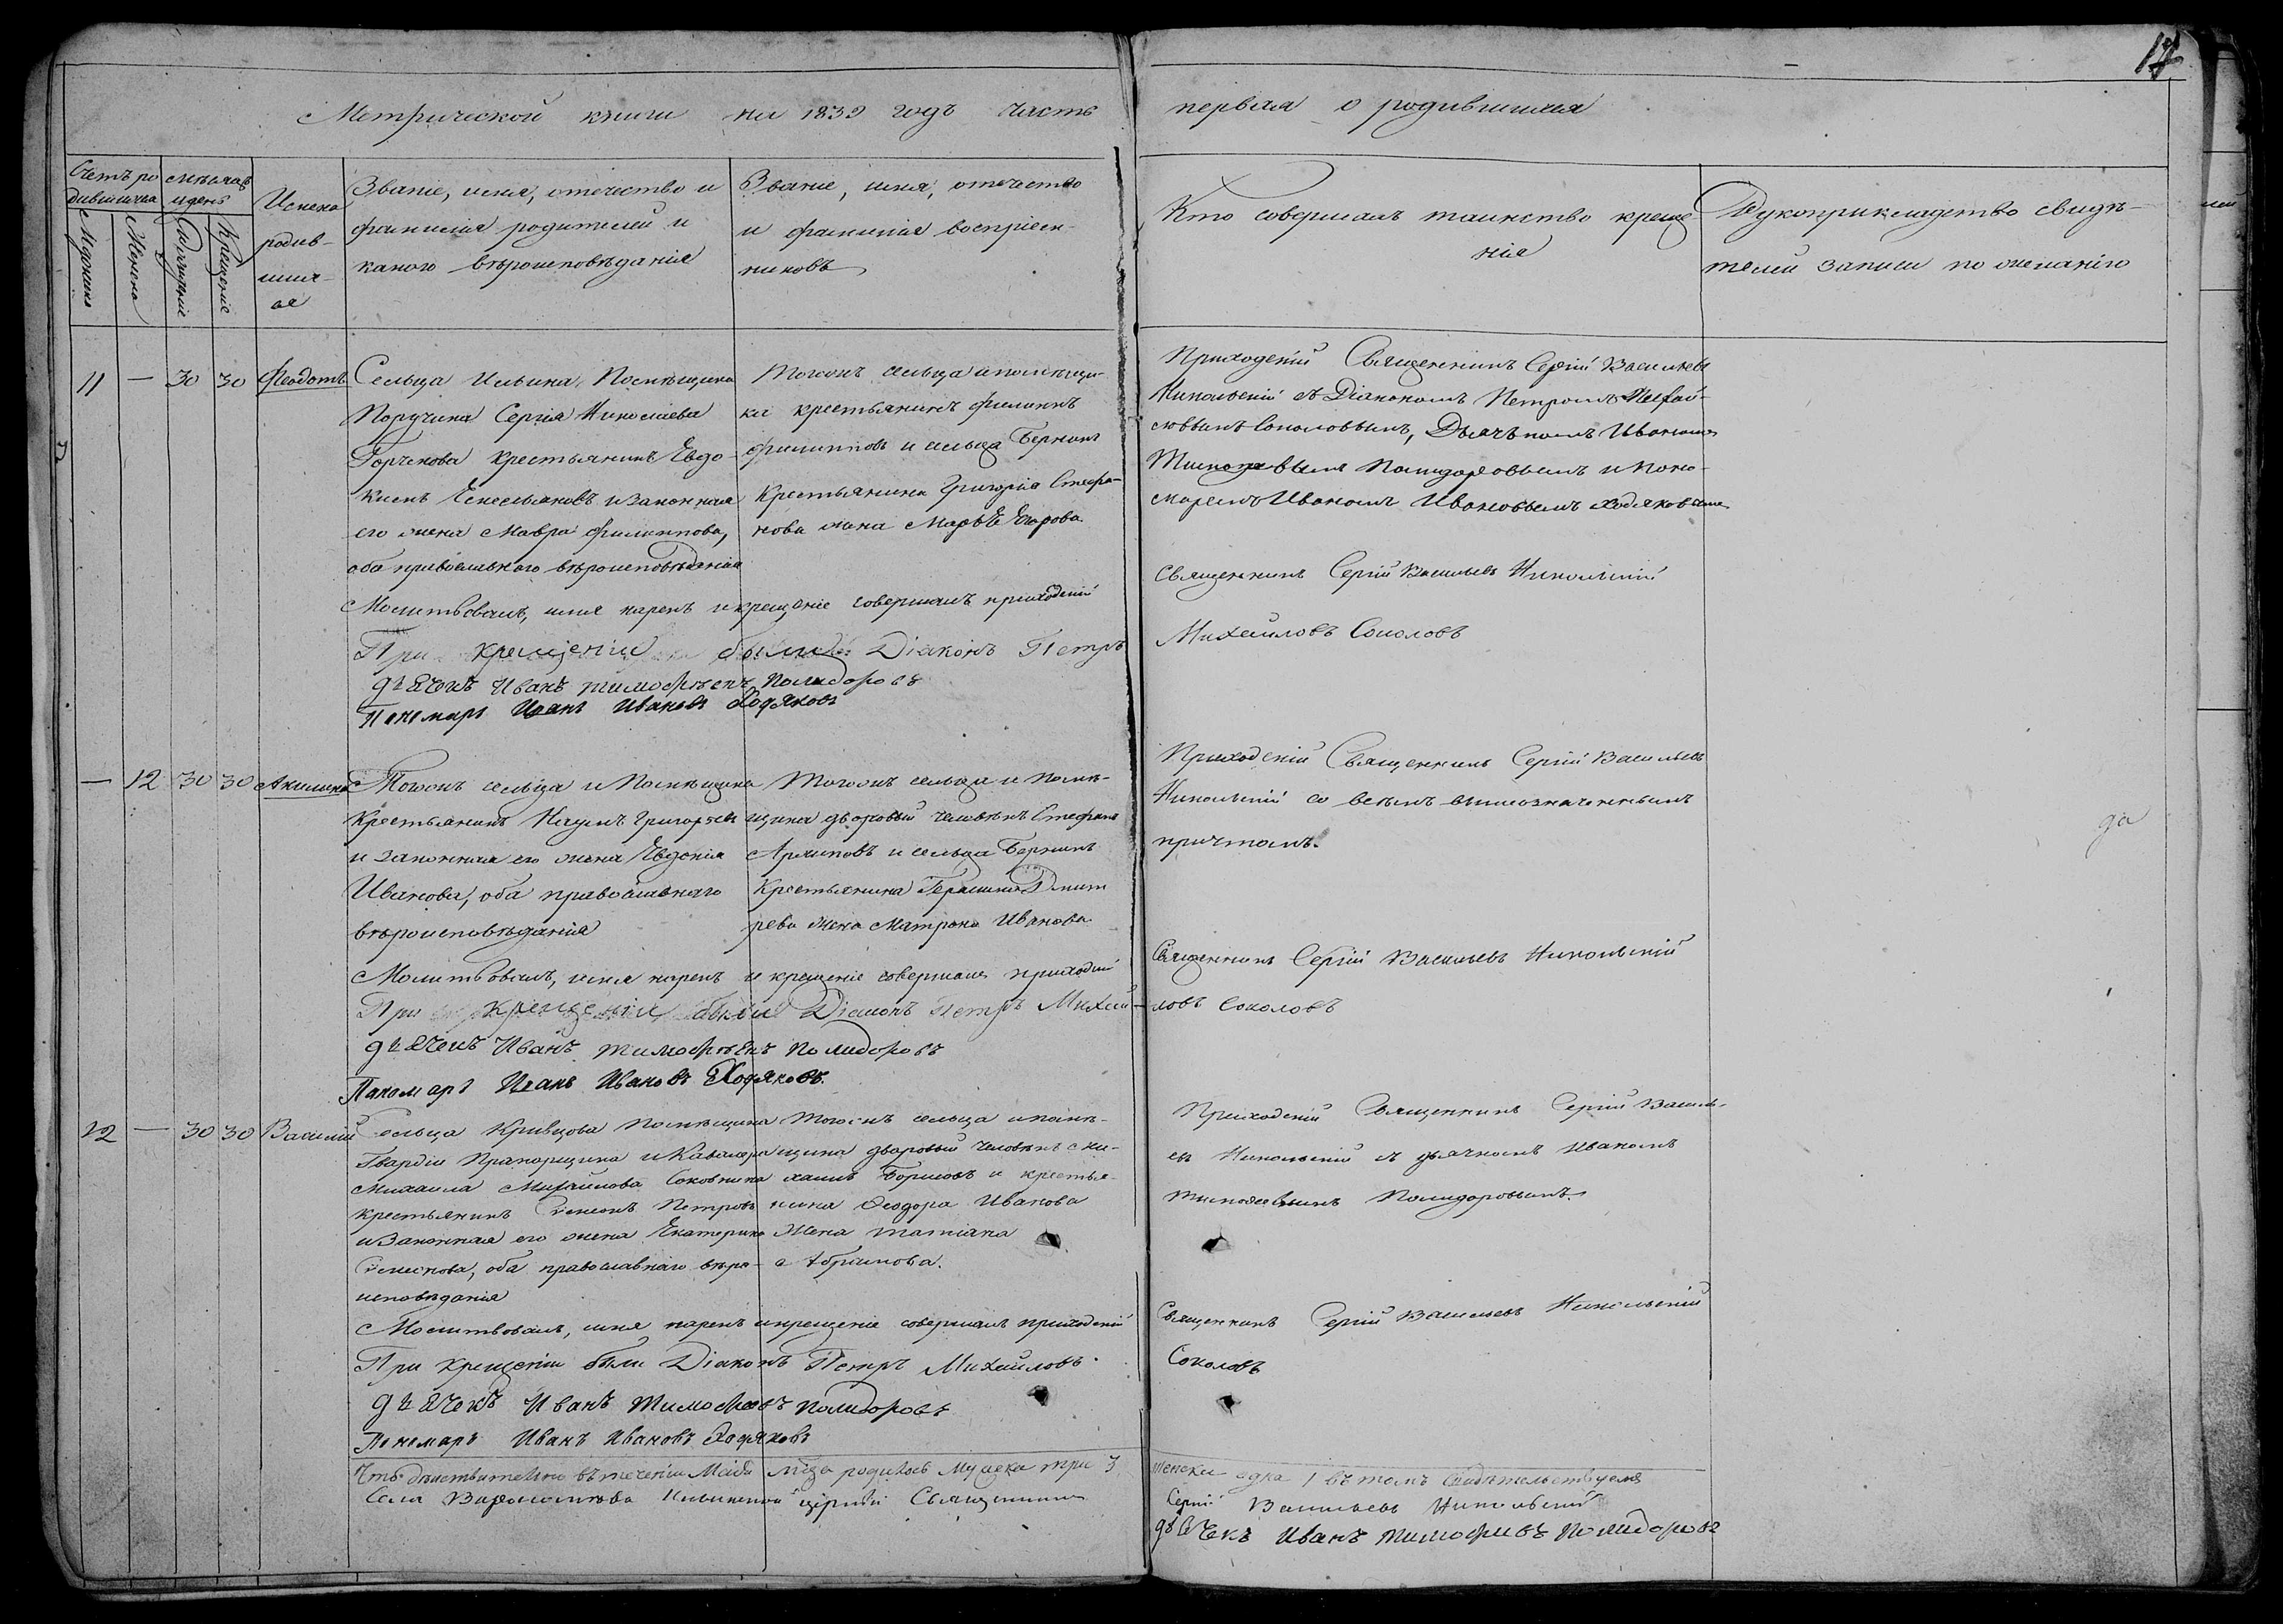 17
Метрической книги на 1839 годъ часть первая о родившихся
Счетъ ро
дившихся
Мужеска
Женска
мѣсяцъ
и день
Рожденіе
Крещеніе
Имена
родив-
ших-
ся
Званіе, имя, отечество и
фамилія родителей и
какого вѣроисповѣданія
Званіе, имя, отечество
и фамилія воспріем-
никовъ
Кто совершалъ таинство креще
нія
Рукоприкладство свидѣ-
телей записи по желанію
11 — 30 30 Феодотъ
Сельца Ильина Помѣщика
Поручика Сергія Николаева
Горчкова крестьянинъ Евдо-
кимъ Емельяновъ и законная
его жена Мавра Филиппова,
оба православнаго вѣроисповѣданія
Тогожъ сельца и помѣщи-
ка крестьянинъ Филиппъ
Филипповъ и сельца
Крестьянина Григорія Стефа-
нова жена Марѳа Егорова.
Приходскій Священникъ Сергій Васильевъ
Никольскій съ Діакономъ Петромъ Михай-
ловымъ Соколовымъ, Дьячькомъ Иваномъ
Тимофеевымъ Полидоровымъ и поно-
маремъ Иваномъ Ивановымъ Ходяковымъ
Молитвовалъ, имя нарекъ и крещеніе совершалъ приходскій
Священникъ Сергій Васильевъ Никольскій
При крещеніи были Діаконъ Петръ
Михайловъ Соколовъ
дьячекъ Иванъ тимофѣевъ Полидоровъ
Пономарь Иванъ Ивановъ Ходяковъ
— 12 30 30 Акилина
Тогожъ сельца и Помѣщика
Крестьянинъ Наумъ Григорьевъ
и законная его жена Евдокія
Иванова, оба православнаго
вѣроисповѣданія
Тогожъ сельца и помѣ-
щика дворовый человѣкъ Стефанъ
Архиповъ и сельца
Крестьянина Герасима Дмит
рева жена Матрона Иванова
Приходскій Священникъ Сергій Васильевъ
Никольскій со всѣмъ вышеозначеннымъ
причтомъ.
да
Молитвовалъ, имя нарекъ и крещеніе совершалъ приходскій
Священникъ Сергій Васильевъ Никольскій
При крещеніи были Діаконъ Петръ Михай-
ловъ Соколовъ
дьячекъ Иванъ тимофѣевъ Полидоровъ
Пономарь Иванъ Ивановъ Ходяковъ.
12 — 30 30 Василій
Сельца Кривцова Помѣщика
Гвардіи Прапорщика и Кавалера
Михаила Михайлова Соковнина
крестьянинъ Симеонъ Петровъ
и Законная его жена Екатерина
Симеонова, оба православнаго вѣро-
исповѣданія
Тогожъ сельца и помѣ-
щика дворовый человѣкъ Ми-
хаилъ Борисовъ и крестья-
нина Ѳеодора Иванова
Жена татіана
Абрамова.
Приходскій Священникъ Сергій Василь-
евъ Никольскій съ дьячкомъ Иваномъ
тимофеевымъ Полидоровымъ.
Молитвовалъ, имя нарекъ и крещеніе совершалъ приходскій
Священникъ Сергій Васильевъ Никольскій
При крещеніи были Діаконъ Петръ Михайловъ
Соколовъ
дьячекъ Иванъ тимофеевъ полидоровъ
Пономарь Иванъ Ивановъ Ходяковъ
Что дѣйствительно въ теченіи Маія м͠ца родилось Мужеска три 3
женска одна 1 въ томъ свидѣтельствуемъ
Села церкви Священникъ
Сергій Васильевъ Никольскій
дьячекъ Иванъ тимофиевъ полидоровъ